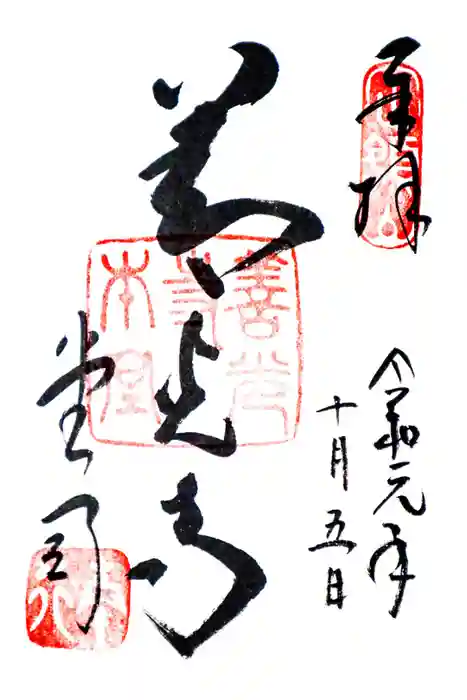 奉拝
定額山
令和元年
十月五日
善光寺
善光
寺
本堂
堂